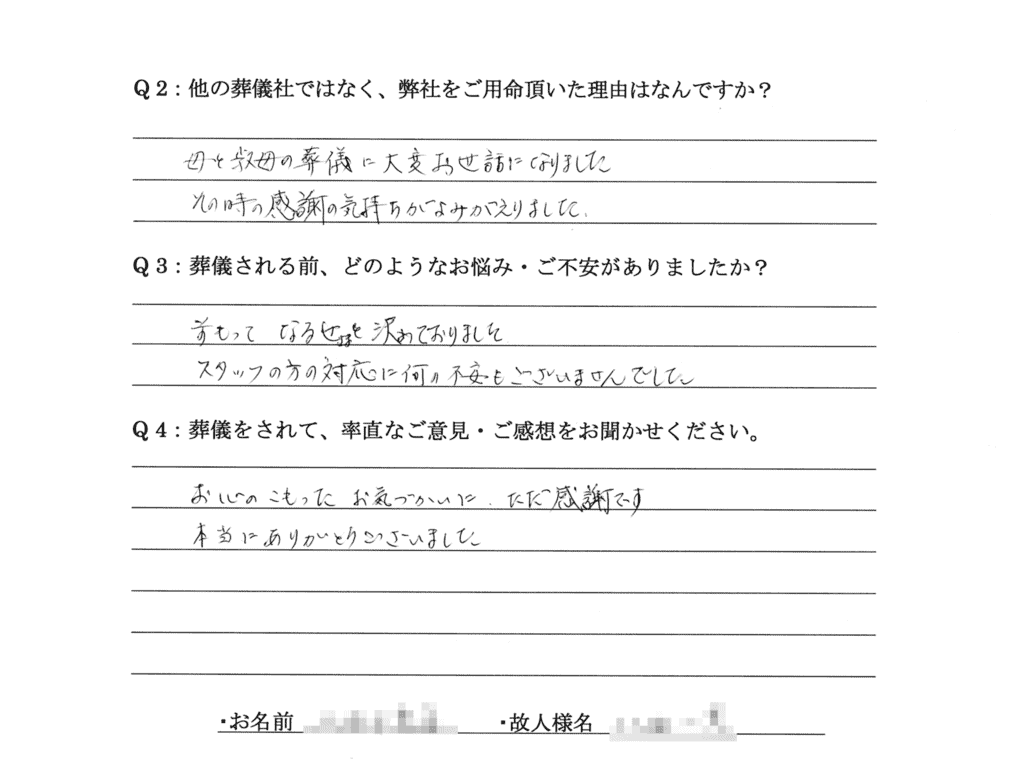 Q2：他の葬儀社ではなく、弊社をご用命頂いた理由はなんですか？
母と叔母の葬儀に大変お世話になりました
その時の感謝の気持ちがよみがえりました。
Q3：葬儀される前、どのようなお悩み・ご不安がありましたか？
前もって なるせ様と決めておりました
スタッフの方の対応に何の不安もございませんでした
Q4：葬儀をされて、率直なご意見・ご感想をお聞かせください。
お心のこもった お気づかいに、ただ感謝です
本当にありがとうございました
・お名前 ・故人様名